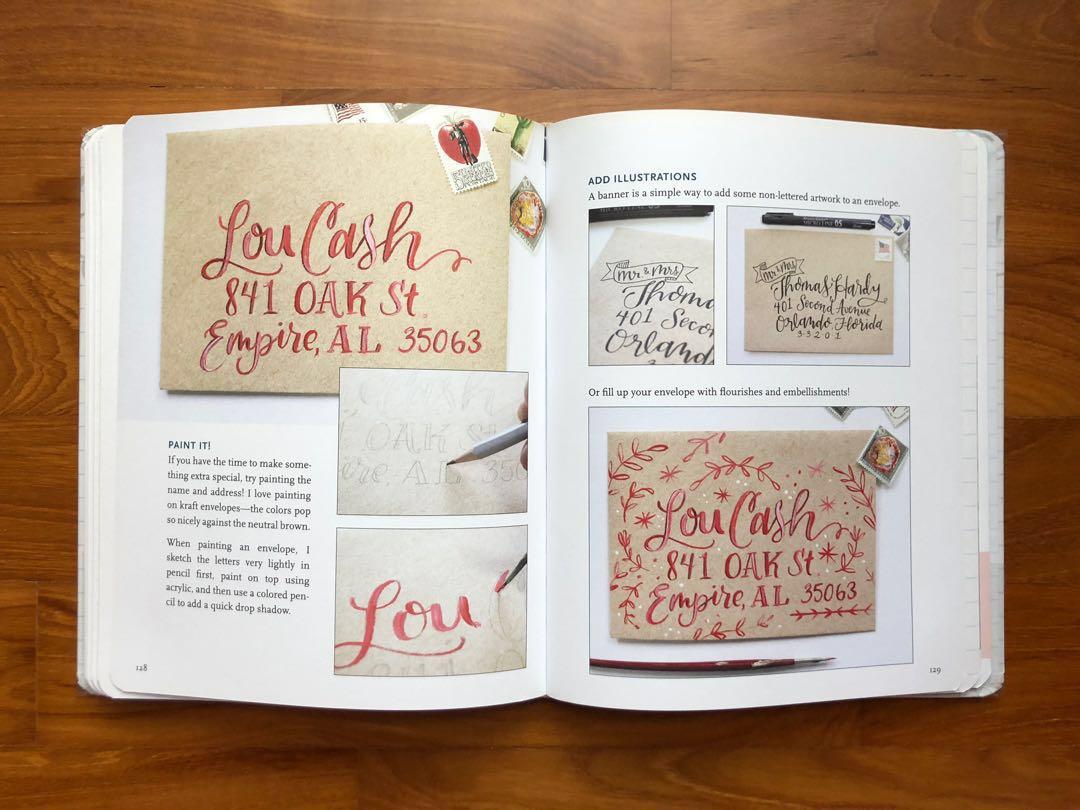 Lou Cash
841 OAK St.
Empire, AL 35063
OAK St
AL 350
PAINT IT!
If you have the time to make some-
thing extra special, try painting the
name and address! I love painting
on kraft envelopes—the colors pop
so nicely against the neutral brown.
When painting an envelope, I
sketch the letters very lightly in
pencil first, paint on top using
acrylic, and then use a colored pen-
cil to add a quick drop shadow.
Lou
128
ADD ILLUSTRATIONS
A banner is a simple way to add some non-lettered artwork to an envelope.
mr. & mrs
Thoma
401 Secon
Orland
MICRO LINE 05
mr. & mrs
Thomas Hardy
401 Second Avenue
Orlando Florida
33201
Or fill up your envelope with flourishes and embellishments!
Lou Cash
841 OAK St
Empire, AL 35063
129